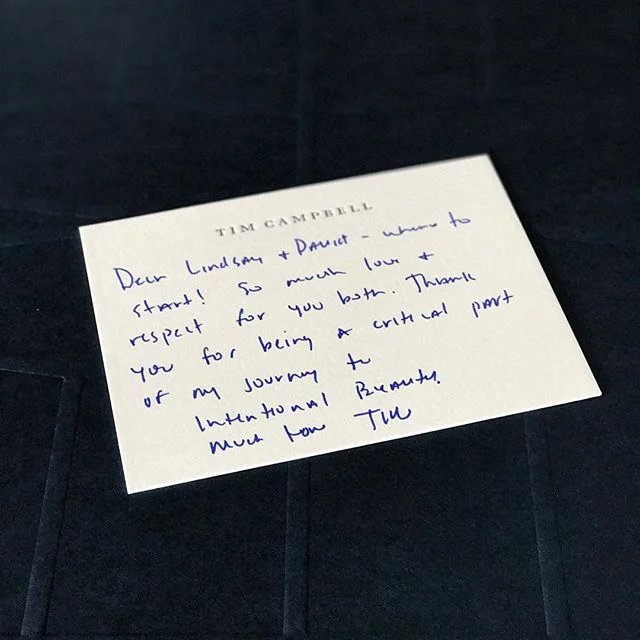 TIM CAMPBELL
Dear Lindsay + David - where to
start! So much love +
respect for you both. Thank
you for being a critical part
of my journey to
Intentional Beauty.
Much love Tim